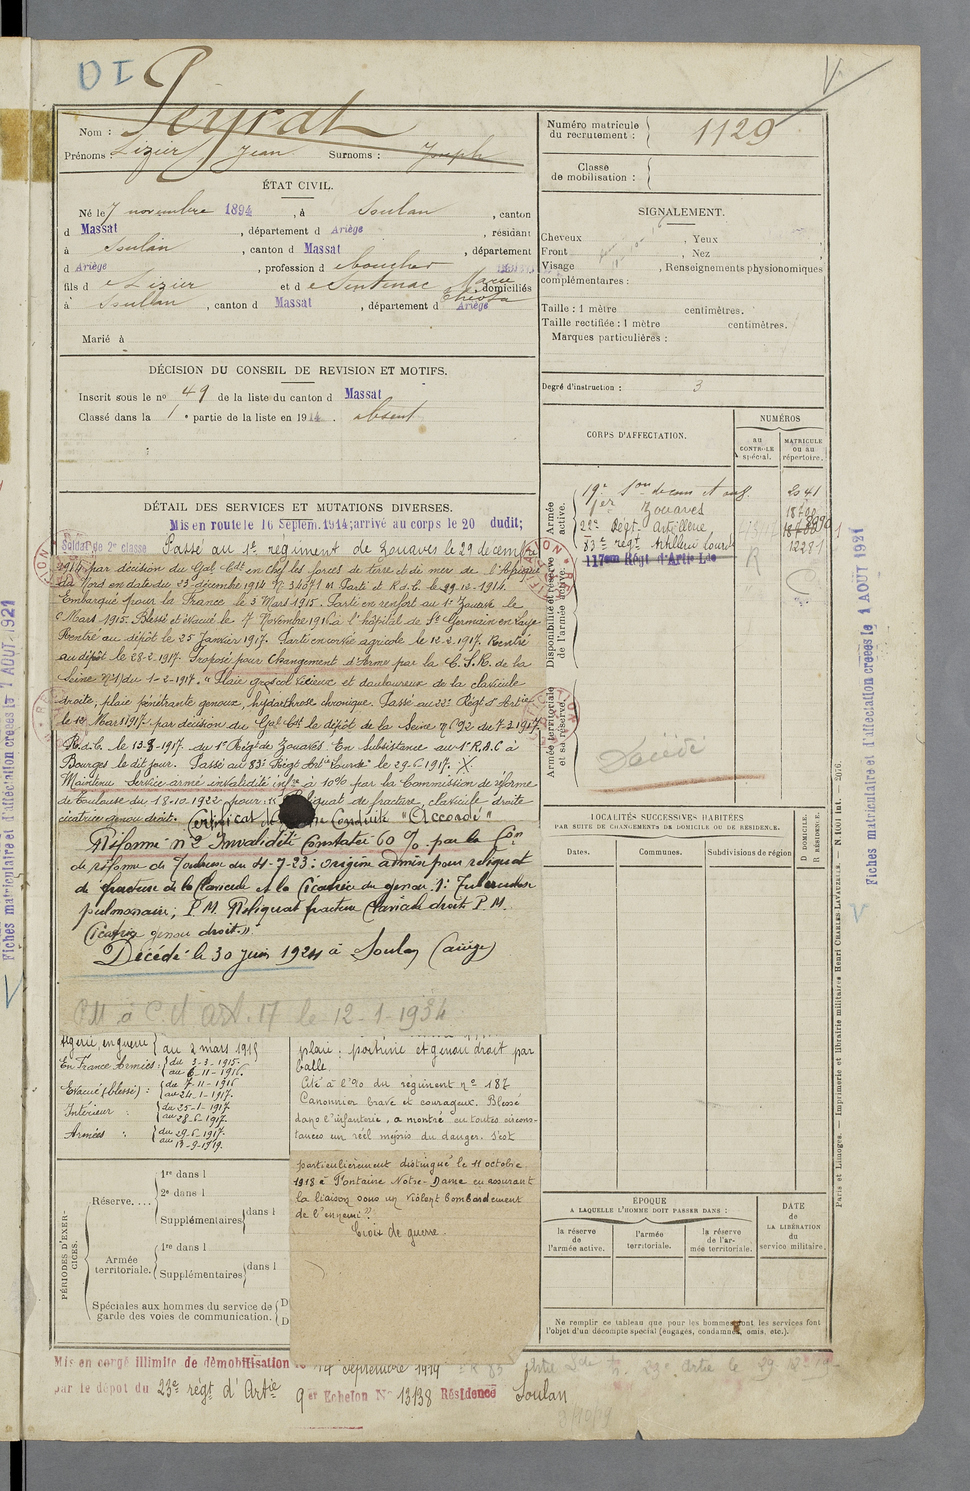 Peyrat
Nom :
Prénoms : Lizier Jean Surnoms : Joseph
ÉTAT CIVIL.
Né le 7 novembre 1894, à Soulan, canton
d Massat, département d Ariège, résidant
à Soulan, canton d Massat, département
d Ariège, profession d boucher
fils d e Lizier et d e Sentenac Marie, domiciliés
à Soulan, canton d Massat, département d Ariège
Marié à
DÉCISION DU CONSEIL DE REVISION ET MOTIFS.
Inscrit sous le no 49 de la liste du canton d Massat
Classé dans la 1e partie de la liste en 1914. absent
DÉTAIL DES SERVICES ET MUTATIONS DIVERSES.
Mis en route le 16 Septem. 1914; arrivé au corps le 20 dudit;
Soldat de 2e classe Passé au 1er régiment de Zouaves le 29 décembre
1914 par décision du Gal Cdt en chef les forces de terre et de mer de l'Afrique
du Nord en date du 23 décembre 1914 No 34071 Parti et R.d.C. le 29.12.1914.
Embarqué pour la France le 3 Mars 1915. Parti en renfort au 1er Zouave le
Mars 1915. Blessé et évacué le 7 Novembre 1916 à l'hôpital de St Germain en Laye
Rentré au dépôt le 25 Janvier 1917. Parti en corvée agricole le 12.2.1917. Rentré
au dépôt le 28-2-1917. Proposé pour changement d'Arme par la C.S.R. de la
Seine No 1 du 1-2-1917. "Plaie vicieux et douloureux de la clavicule
droite, plaie pénétrante genoux, hydarthrose chronique. Passé au 22e Régt d'Artie
le 12 Mars 1917 par décision du Gal Cdt le dépôt de la Seine no 692 du 7-3-1917
R.d.C. le 13.3.1917 du 1er Régt de Zouaves. En subsistance au 1er R.A.C à
Bourges le dit jour. Passé au 83e Régt Artie Lourde le 29.6.1917.
Maintenu service armé invalidité infre à 10% par la Commission de réforme
de Toulouse du 18.10.1922 pour : Reliquat de fracture, clavicule droite
cicatrice genou droit. Certificat de Bonne Conduite "Accordé"
Réformé no 2 Invalidité Constatée 60% par la Con
de réforme de Toulouse du 4-7-23: origine admin pour reliquat
de fracture de la clavicule et la Cicatrice du genou. 1: Tuberculose
pulmonaire; P.M. Reliquat fracture Clavicule droite P.M.
Cicatrice genou droit."
Décédé le 30 juin 1924 à Soulan (Ariège)
CM à C. d Art. 17 le 12-1-1934
Algérie, en guerre { au 2 mars 1915
En France Armées : { du 3-3-1915.
au 6-11-1916.
Evacué (blessé) : { du 7-11-1916
au 24-1-1917.
Intérieur : { du 25-1-1917.
au 28-6-1917.
Armées : { du 29-6-1917.
au 13-9-1919.
plaie : poitrine et genou droit par
balle
Cité à l'Ordre du régiment no 187
Canonnier brave et courageux. Blessé
dans l'infanterie, a montré en toutes circons-
tances un réel mépris du danger. S'est
particulièrement distingué le 11 octobre
1918 à Fontaine Notre-Dame en assurant
la liaison sous un violent bombardement
de l'ennemi".
Croix de guerre.
PÉRIODES D'EXERCICES.
Réserve....
1re dans l
2e dans l
Supplémentaires dans l
Armée territoriale.
1re dans l
Supplémentaires dans l
Spéciales aux hommes du service de
garde des voies de communication.
Mis en congé illimité de démobilisation le 14 Septembre 1919
par le dépôt du 23e régt d'Artie 9er Echelon No 13138 Résidence Soulan
Numéro matricule
du recrutement : 1129
Classe
de mobilisation :
SIGNALEMENT.
Cheveux , Yeux
Front , Nez
Visage , Renseignements physionomiques
complémentaires :
Taille : 1 mètre centimètres.
Taille rectifiée : 1 mètre centimètres.
Marques particulières :
Degré d'instruction : 3
CORPS D'AFFECTATION.
NUMÉROS
AU CONTRÔLE spécial.
MATRICULE ou au répertoire.
Armée active.
19e Son de com et ouv. 2041
1er Zouaves
22e Régt Artillerie
83e régt Artillerie Lourde 12281
117eme Régt d'Artie Lde
Disponibilité et réserve de l'armée active.
Armée territoriale et sa réserve.
Décédé
LOCALITÉS SUCCESSIVES HABITÉES
PAR SUITE DE CHANGEMENTS DE DOMICILE OU DE RÉSIDENCE.
Dates. Communes. Subdivisions de région D DOMICILE. R RÉSIDENCE.
ÉPOQUE
A LAQUELLE L'HOMME DOIT PASSER DANS :
la réserve de l'armée active.
l'armée territoriale.
la réserve de l'armée territoriale.
DATE de LA LIBÉRATION du service militaire.
Ne remplir ce tableau que pour les hommes dont les services font
l'objet d'un décompte spécial (engagés, condamnés, omis, etc.).
Paris et Limoges. — Imprimerie et librairie militaires Henri CHARLES-LAVAUZELLE.
Fiches matriculaire et d'affectation créées le 1 AOUT 1921
Fiches matriculaire et d'affectation créées le 1 AOUT 1921